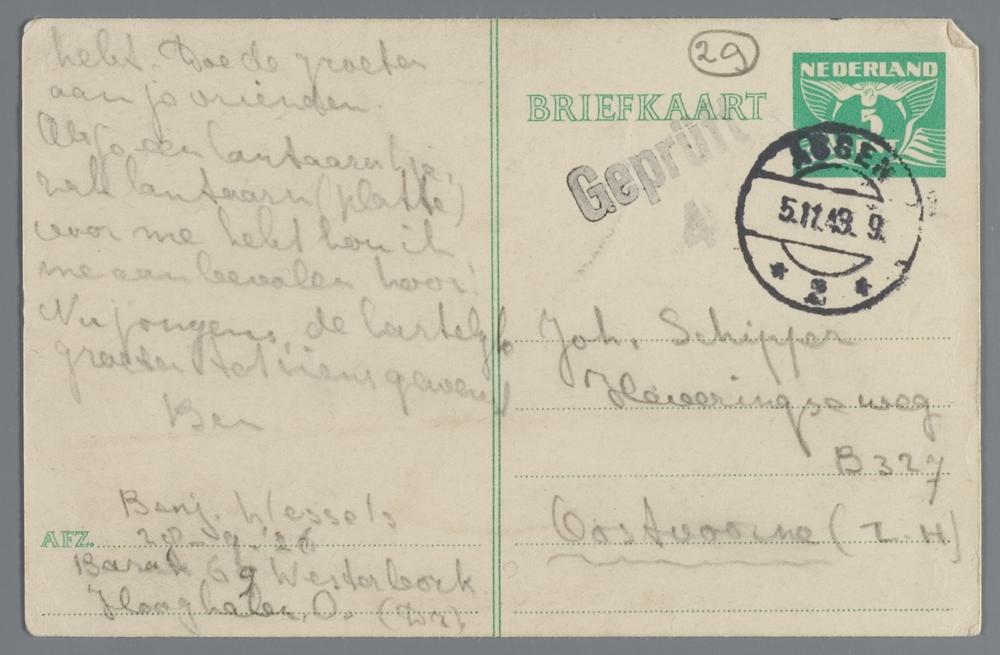 hebt. Doe de groeten
aan je vrienden.
Als je een lantaarntje,
zak lantaarn (platte)
voor me hebt hou ik
me aanbevolen hoor!
Nu jongens, de hartelijke
groeten tot ziens gewenst
Ben
AFZ. Benj. Wessels
28-9-'26
Barak 69 Westerbork
Hooghalen, O. (Dr.)
29
NEDERLAND
5
BRIEFKAART
Geprüft
4
ASSEN
5.11.43. 9.
2
Joh. Schipper
Heveringseweg
B 327
Oostvoorne (Z.H)